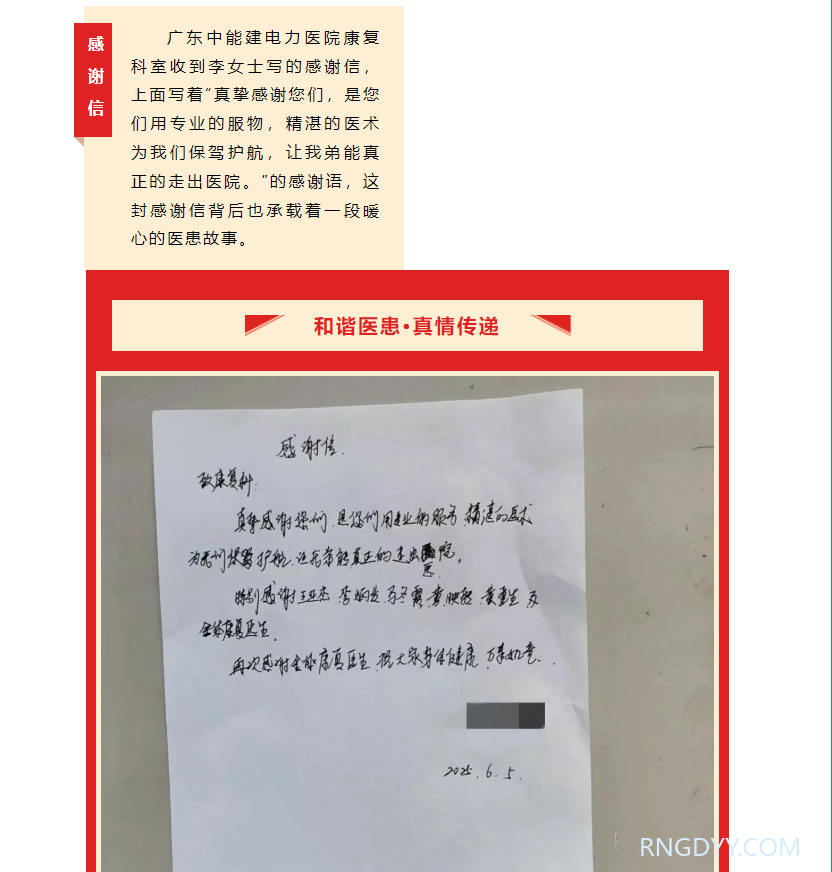 感谢信
广东中能建电力医院康复
科室收到李女士写的感谢信，
上面写着“真挚感谢您们，是您
们用专业的服物，精湛的医术
为我们保驾护航，让我弟能真
正的走出医院。”的感谢语，这
封感谢信背后也承载着一段暖
心的医患故事。
和谐医患·真情传递
感谢信.
致康复科:
真挚感谢您们.是您们用专业的服务 精湛的医术
为我们保驾护航.让我弟能真正的走出院。
医
特别感谢王亚杰 李炳 马冬霞 黄映 黄重生 及
全体康复医生.
再次感谢全体康复医生.祝大家身体健康,万事如意..
2025.6.5.
RNGDYY.COM